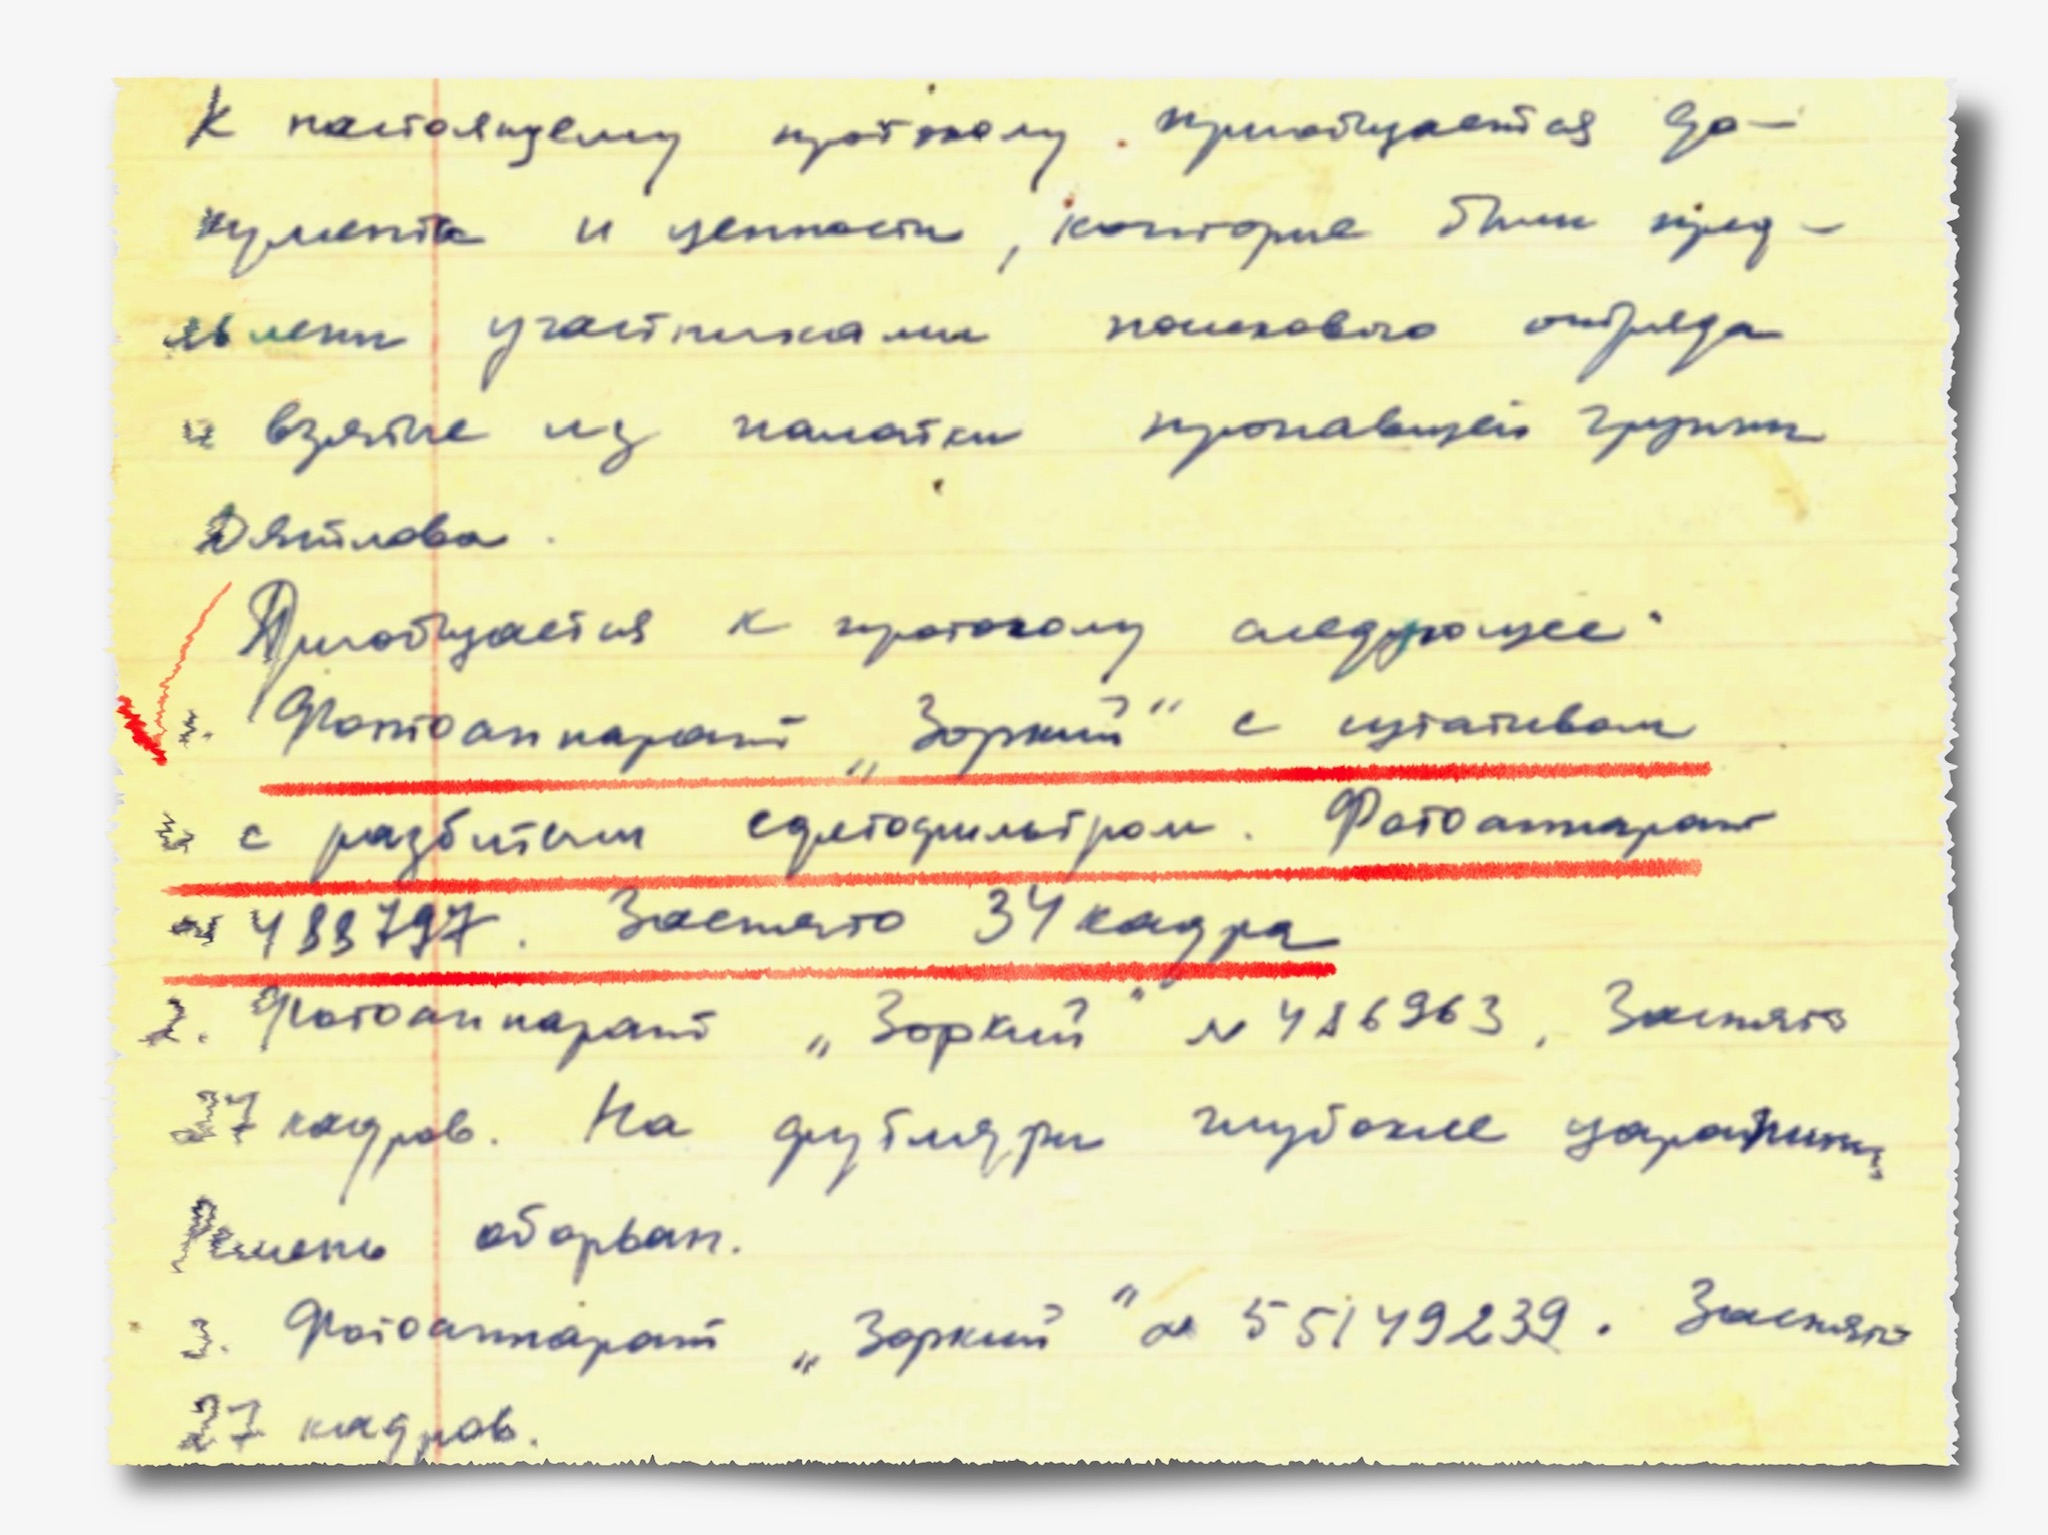 К настоящему протоколу приобщается до-
кументы и ценности, которые были пред-
явлены участниками поискового отряда
и взятые из палатки пропавшей группы
Дятлова.
Приобщается к протоколу следующее:
1. Фотоаппарат „Зоркий“ с штативом
и с разбитым светофильтром. Фотоаппарат
№ 488797. Заснято 34 кадра
2. Фотоаппарат „Зоркий“ № 486963, Заснято
27 кадров. На футляри глубокие царапины,
Ремень оборван.
3. Фотоаппарат „Зоркий“ № 55149239. Заснято
27 кадров.